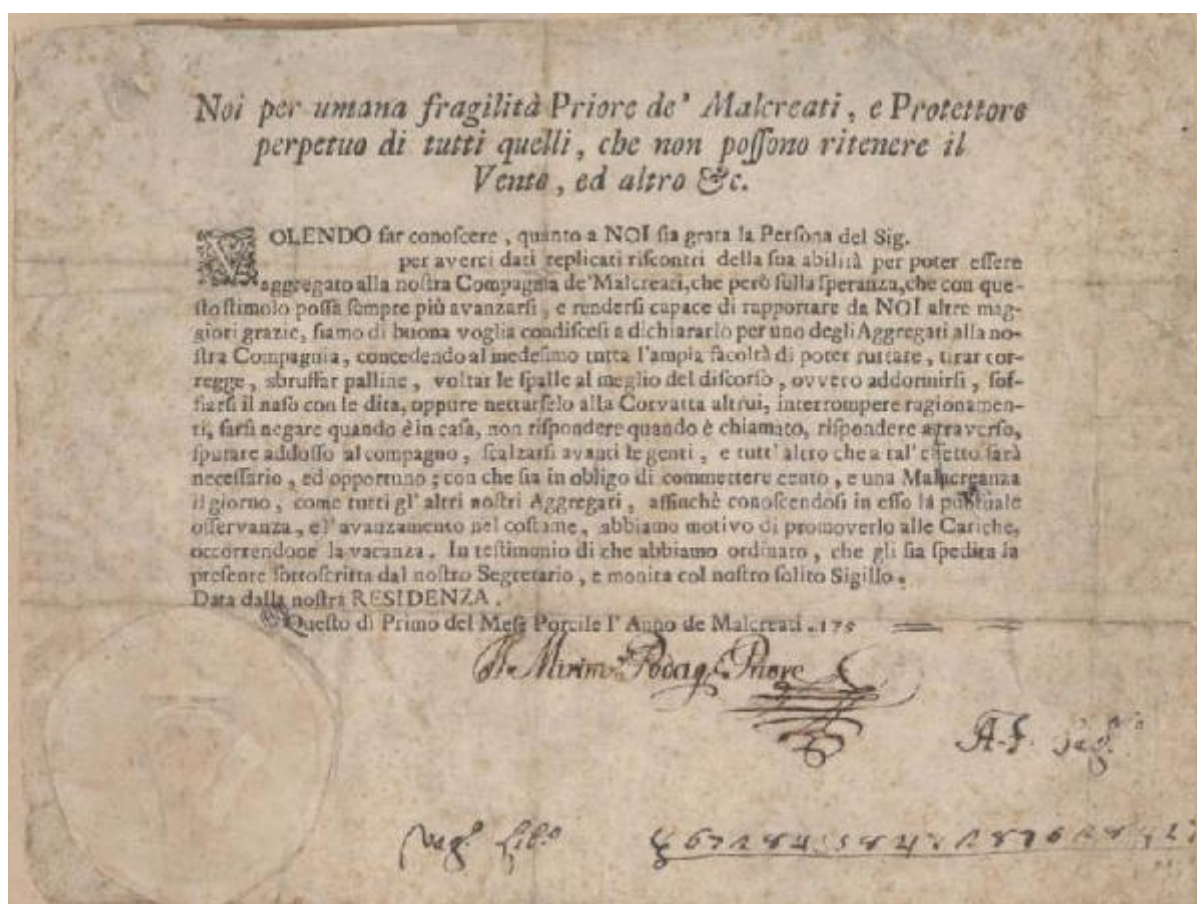 Noi per umana fragilità Priore de' Malcreati, e Protettore
perpetuo di tutti quelli, che non poſſono ritenere il
Vento, ed altro &c.
VOLENDO far conoſcere, quanto a NOI ſia grata la Perſona del Sig.
per averci dati replicati riſcontri della ſua abilità per poter eſſere
aggregato alla noſtra Compagnia de' Malcreati, che però ſulla ſperanza, che con que-
ſto ſtimolo poſſa ſempre più avanzarſi, e renderſi capace di rapportare da NOI altre mag-
giori grazie, ſiamo di buona voglia condiſceſi a dichiararlo per uno degli Aggregati alla no-
ſtra Compagnia, concedendo al medeſimo tutta l'ampla facoltà di poter ruttare, tirar cor-
regge, sbruffar palline, voltar le ſpalle al meglio del diſcorſo, ovvero addormirſi, ſof-
fiarſi il naſo con le dita, oppure nettarſelo alla Corvatta altrui, interrompere ragionamen-
ti, farſi negare quando è in caſa, non riſpondere quando è chiamato, riſpondere atraverſo,
ſputare addoſſo al compagno, ſcalzarſi avanti le genti, e tutt' altro che a tal' effetto ſarà
neceſſario, ed opportuno; con che ſia in obligo di commettere cento, e una Malucreanza
il giorno, come tutti gl' altri noſtri Aggregati, affinchè conoſcendoſi in eſſo la puntuale
oſſervanza, e l' avanzamento nel coſtume, abbiamo motivo di promoverlo alle Cariche,
occorrendone la vacanza. In teſtimonio di che abbiamo ordinato, che gli ſia ſpedita la
preſente ſottoſcritta dal noſtro Segretario, e monita col noſtro ſolito Sigillo.
Data dalla noſtra RESIDENZA.
Queſto dì Primo del Meſe Porcile l' Anno de Malcreati. 175
Priore
A. F. Seg.